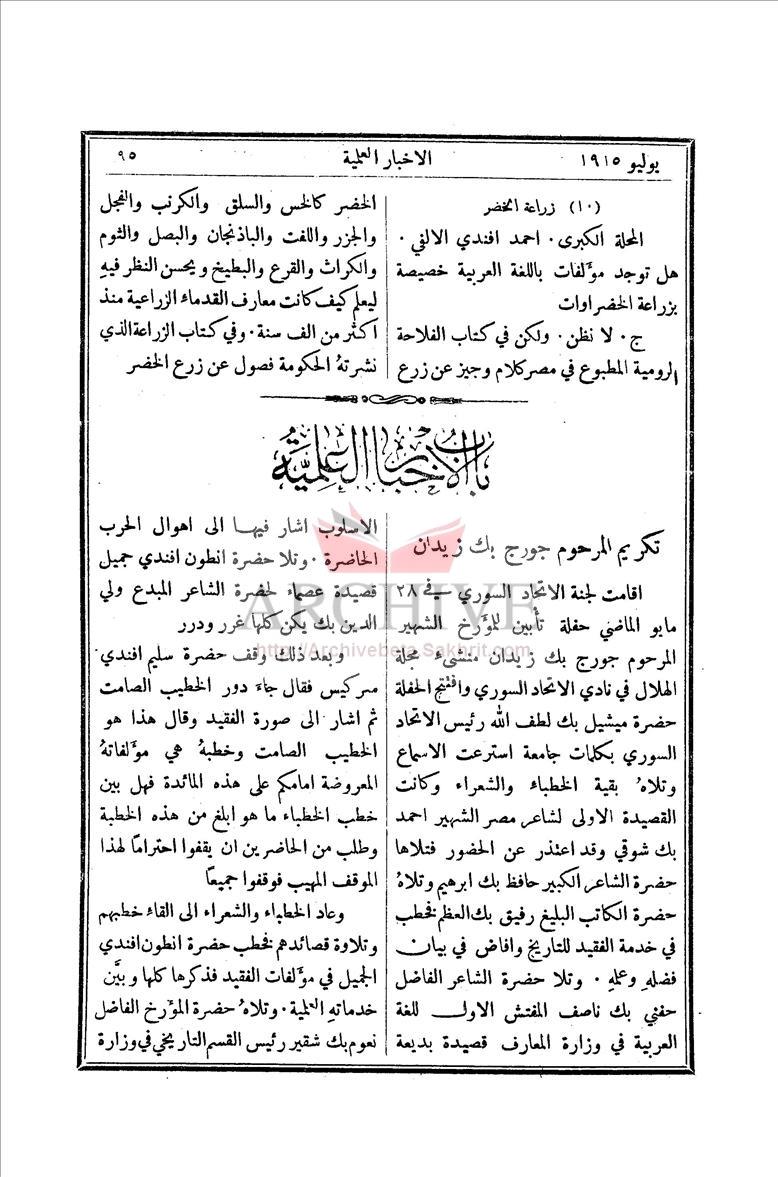 يوليو ١٩١٥
الاخبار العلمية
٩٥
(١٠) زراعة الخضر
المحلة الكبرى. احمد افندي الالفي.
هل توجد مؤلفات باللغة العربية خصيصة
بزراعة الخضراوات
ج. لا نظن. ولكن في كتاب الفلاحة
الرومية المطبوع في مصر كلام وجيز عن زرع
الخضر كالخس والسلق والكرنب والفجل
والجزر واللفت والباذنجان والبصل والثوم
والكراث والقرع والبطيخ ويحسن النظر فيهِ
ليعلم كيف كانت معارف القدماء الزراعية منذ
اكثر من الف سنة. وفي كتاب الزراعة الذي
نشرتهُ الحكومة فصول عن زرع الخضر
باب الاخبار العلمية
تكريم المرحوم جورج بك زيدان
اقامت لجنة الاتحاد السوري في ٢٨
مايو الماضي حفلة تأبين للمؤرخ الشهير
المرحوم جورج بك زيدان منشىء مجلة
الهلال في نادي الاتحاد السوري وافتتح الحفلة
حضرة ميشيل بك لطف الله رئيس الاتحاد
السوري بكلمات جامعة استرعت الاسماع
وتلاهُ بقية الخطباء والشعراء وكانت
القصيدة الاولى لشاعر مصر الشهير احمد
بك شوقي وقد اعتذر عن الحضور فتلاها
حضرة الشاعر الكبير حافظ بك ابرهيم وتلاهُ
حضرة الكاتب البليغ رفيق بك العظم فخطب
في خدمة الفقيد للتاريخ وافاض في بيان
فضلهِ وعملهِ. وتلا حضرة الشاعر الفاضل
حفني بك ناصف المفتش الاول للغة
العربية في وزارة المعارف قصيدة بديعة
الاسلوب اشار فيها الى اهوال الحرب
الحاضرة. وتلا حضرة انطون افندي جميل
قصيدة عصماء لحضرة الشاعر المبدع ولي
الدين بك يكن كلها غرر ودرر
وبعد ذلك وقف حضرة سليم افندي
سركيس فقال جاء دور الخطيب الصامت
ثم اشار الى صورة الفقيد وقال هذا هو
الخطيب الصامت وخطبهُ هي مؤلفاتهُ
المعروضة امامكم على هذه المائدة فهل بين
خطب الخطباء ما هو ابلغ من هذه الخطبة
وطلب من الحاضرين ان يقفوا احتراماً لهذا
الموقف المهيب فوقفوا جميعاً
وعاد الخطباء والشعراء الى القاء خطبهم
وتلاوة قصائدهم فخطب حضرة انطون افندي
الجميل في مؤلفات الفقيد فذكرها كلها وبيَّن
خدماتهِ العلمية. وتلاهُ حضرة المؤرخ الفاضل
نعوم بك شقير رئيس القسم التاريخي في وزارة
ARCHIVE
http://Archivebeta.Sakhrit.com